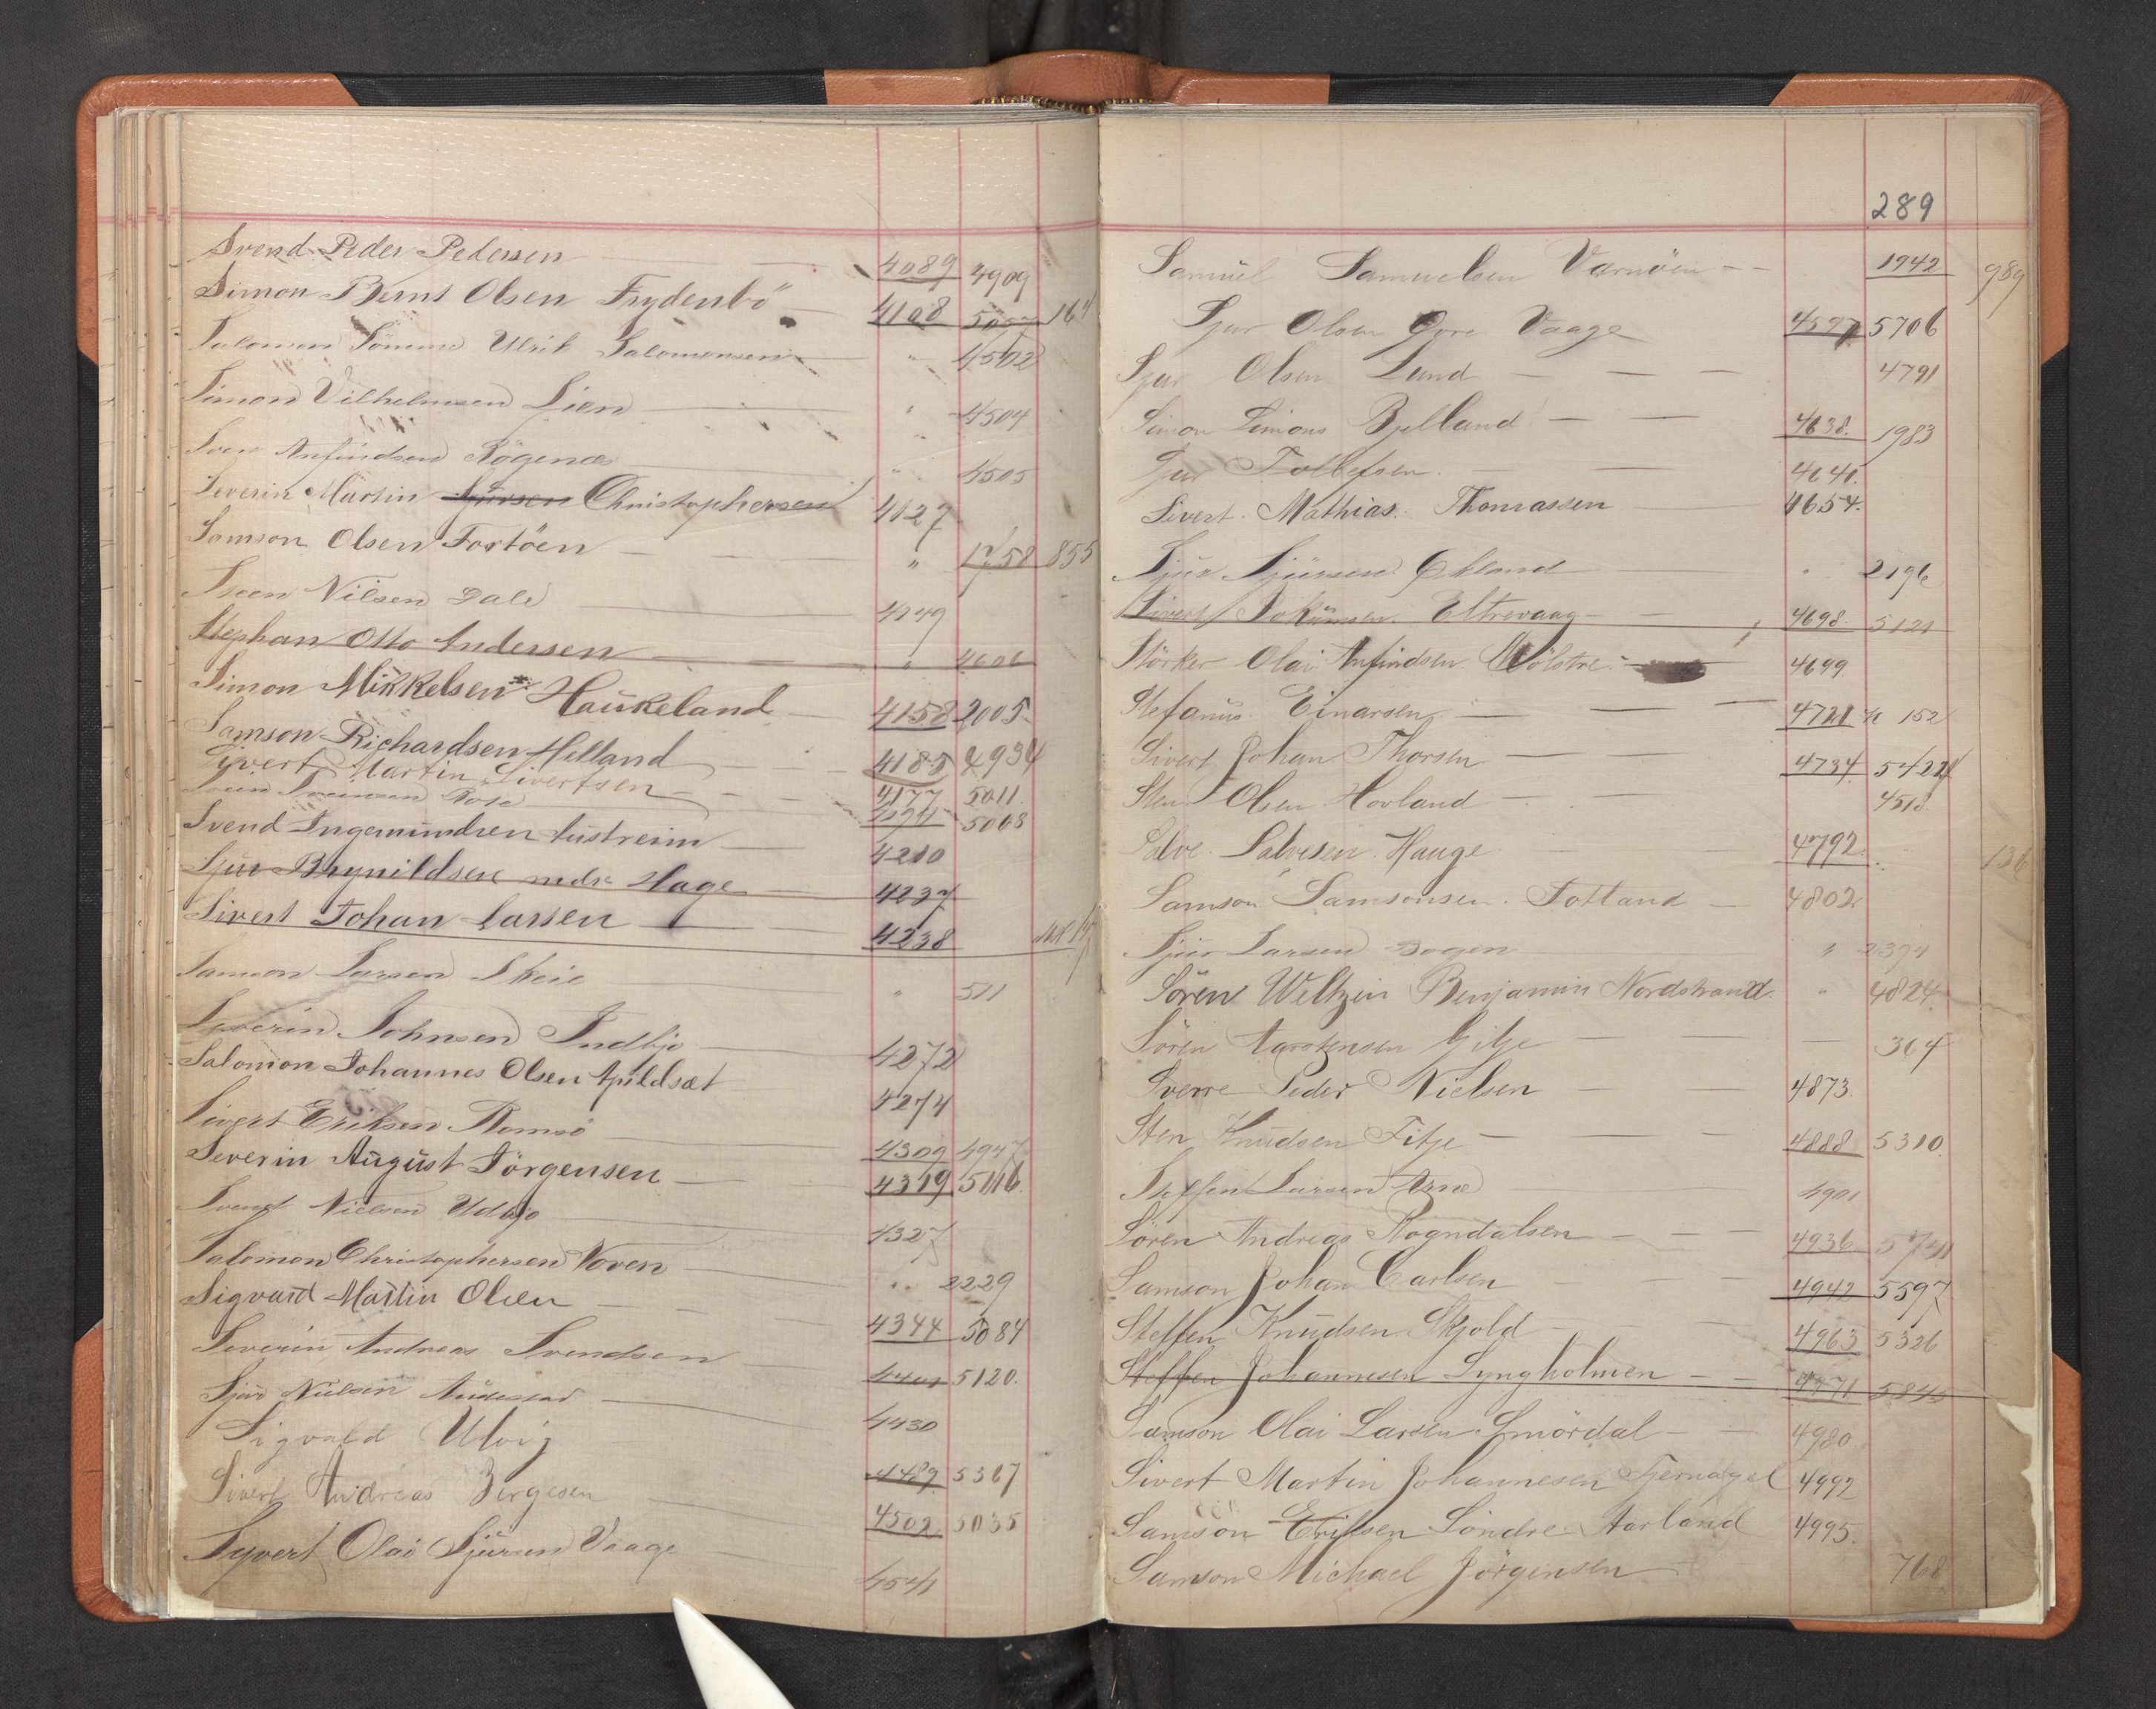 Svend Peder Pedersen 4089 4909
Simon Bernt Olsen Frydenbö 4108 5057 16
Salomon Ulrik Salomonsen " 4502
Simon Vilhelmsen Lien " 4504
Sven Anfindsen Rögenes " 4505
Severin Martin Christophersen 4127
Samson Olsen Fortöen " 1758 855
Steen Nilsen Dale 4149
Stephan Otto Andersen " 4606
Simon Mikkelsen Haukeland 4158 2005
Samson Richardsen Helland 4185 4934
Sivert Martin Sivertsen 4177 5011
5068
Svend Ingemundsen Austreim 4210
Sjur Brynildsen nedre Hage 4237
Sivert Johan Larsen 4238
Samson Larsen Skeie " 511
Severin Johnsen Indbjo 4272
Salomon Johannes Olsen Apildsæt 4274
Sivert Eriksen Romsö 4309 4947
Severin August Jörgensen 4319 5116
Svend Nielsen 4327
Salomon Christophersen Voven " 2229
Sigvard Martin Olsen 4344 5084
Severin Andreas Svendsen 4401 5120
Sjur Nielsen 4430
Sigvald Ulvig
Sivert Andreas Börgesen 4489 5367
4502 5035
Syvert Olai Sjursen Vaage 4541
289
Samuel Samuelsen Værnöen 1942 989
Sjur Olsen Övre Vaage 4597 5706
Sjur Olsen Lund 4791
Simon Simons Bjelland 4638 1983
Sjur Tollefsen 4641
Sivert Mathias Thomassen 4654
Sjur Sjursen Ekland " 2196
Sivert Eltrevaag 4698 5121
Störker Olai Anfindsen Mölstre 4699
Stefanus Einarsen 4721 152
Sivert Johan Thorsen 4734 5422
Sten Olsen Hovland 4518
Salve Salvesen Hauge 4792 136
Samson Samsonsen Totland 4802
Sjur Larsen Bogen " 2394
Sören Weltzin Benjamin Nordstrand " 4824
Sören Gilje 364
Sverre Peder Nielsen 4873
Sten Knudsen Fitje 4888 5310
Steffen Larsen Arne 4901
Sören Andreas Rogndalsen 4936 5741
Samson Johan Carlsen 4942 5597
Steffen Knudsen Skjold 4963 5326
Steffen Johannesen Lyngholmen 4971 5845
Samson Olai Larsen Smördal 4980
Sivert Martin Johannesen Tjernagel 4992
Samson Eriksen Söndre Aarland 4995
Samson Michael Jörgensen 768